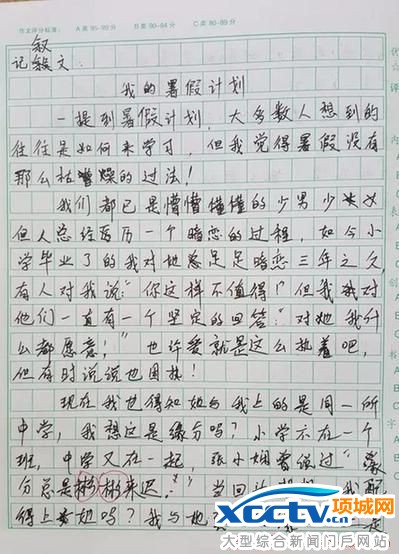 作文评分标准： A类95-99分 B类90-94分 C类80-89分
叙
记叙文：
我的暑假计划
一提到暑假计划，大多数人想到的
往往是如何来学习，但我觉得暑假没有
那么枯燥的过法！
我们都已是懵懵懂懂的少男少女
但人总经历一个暗恋的过程，如今小
学毕业了的我对她总是足足暗恋三年之久，
有人对我说：“你这样不值得！”但我对
他们一直有一个坚定的回答：“对她我什
么都愿意！”也许爱就是这么执着吧，
但有时说说也困热！
现在我也得知她与我上的是同一所
中学，我想这是缘分吗？小学不在一个
班，中学又在一起，张小娴曾说过“缘
分总是姗姗来迟。”当回
得上她吗？我与她
xcctv.cn 项城网
大型综合新闻门戶网站
优
☆
评
内
表
创
A